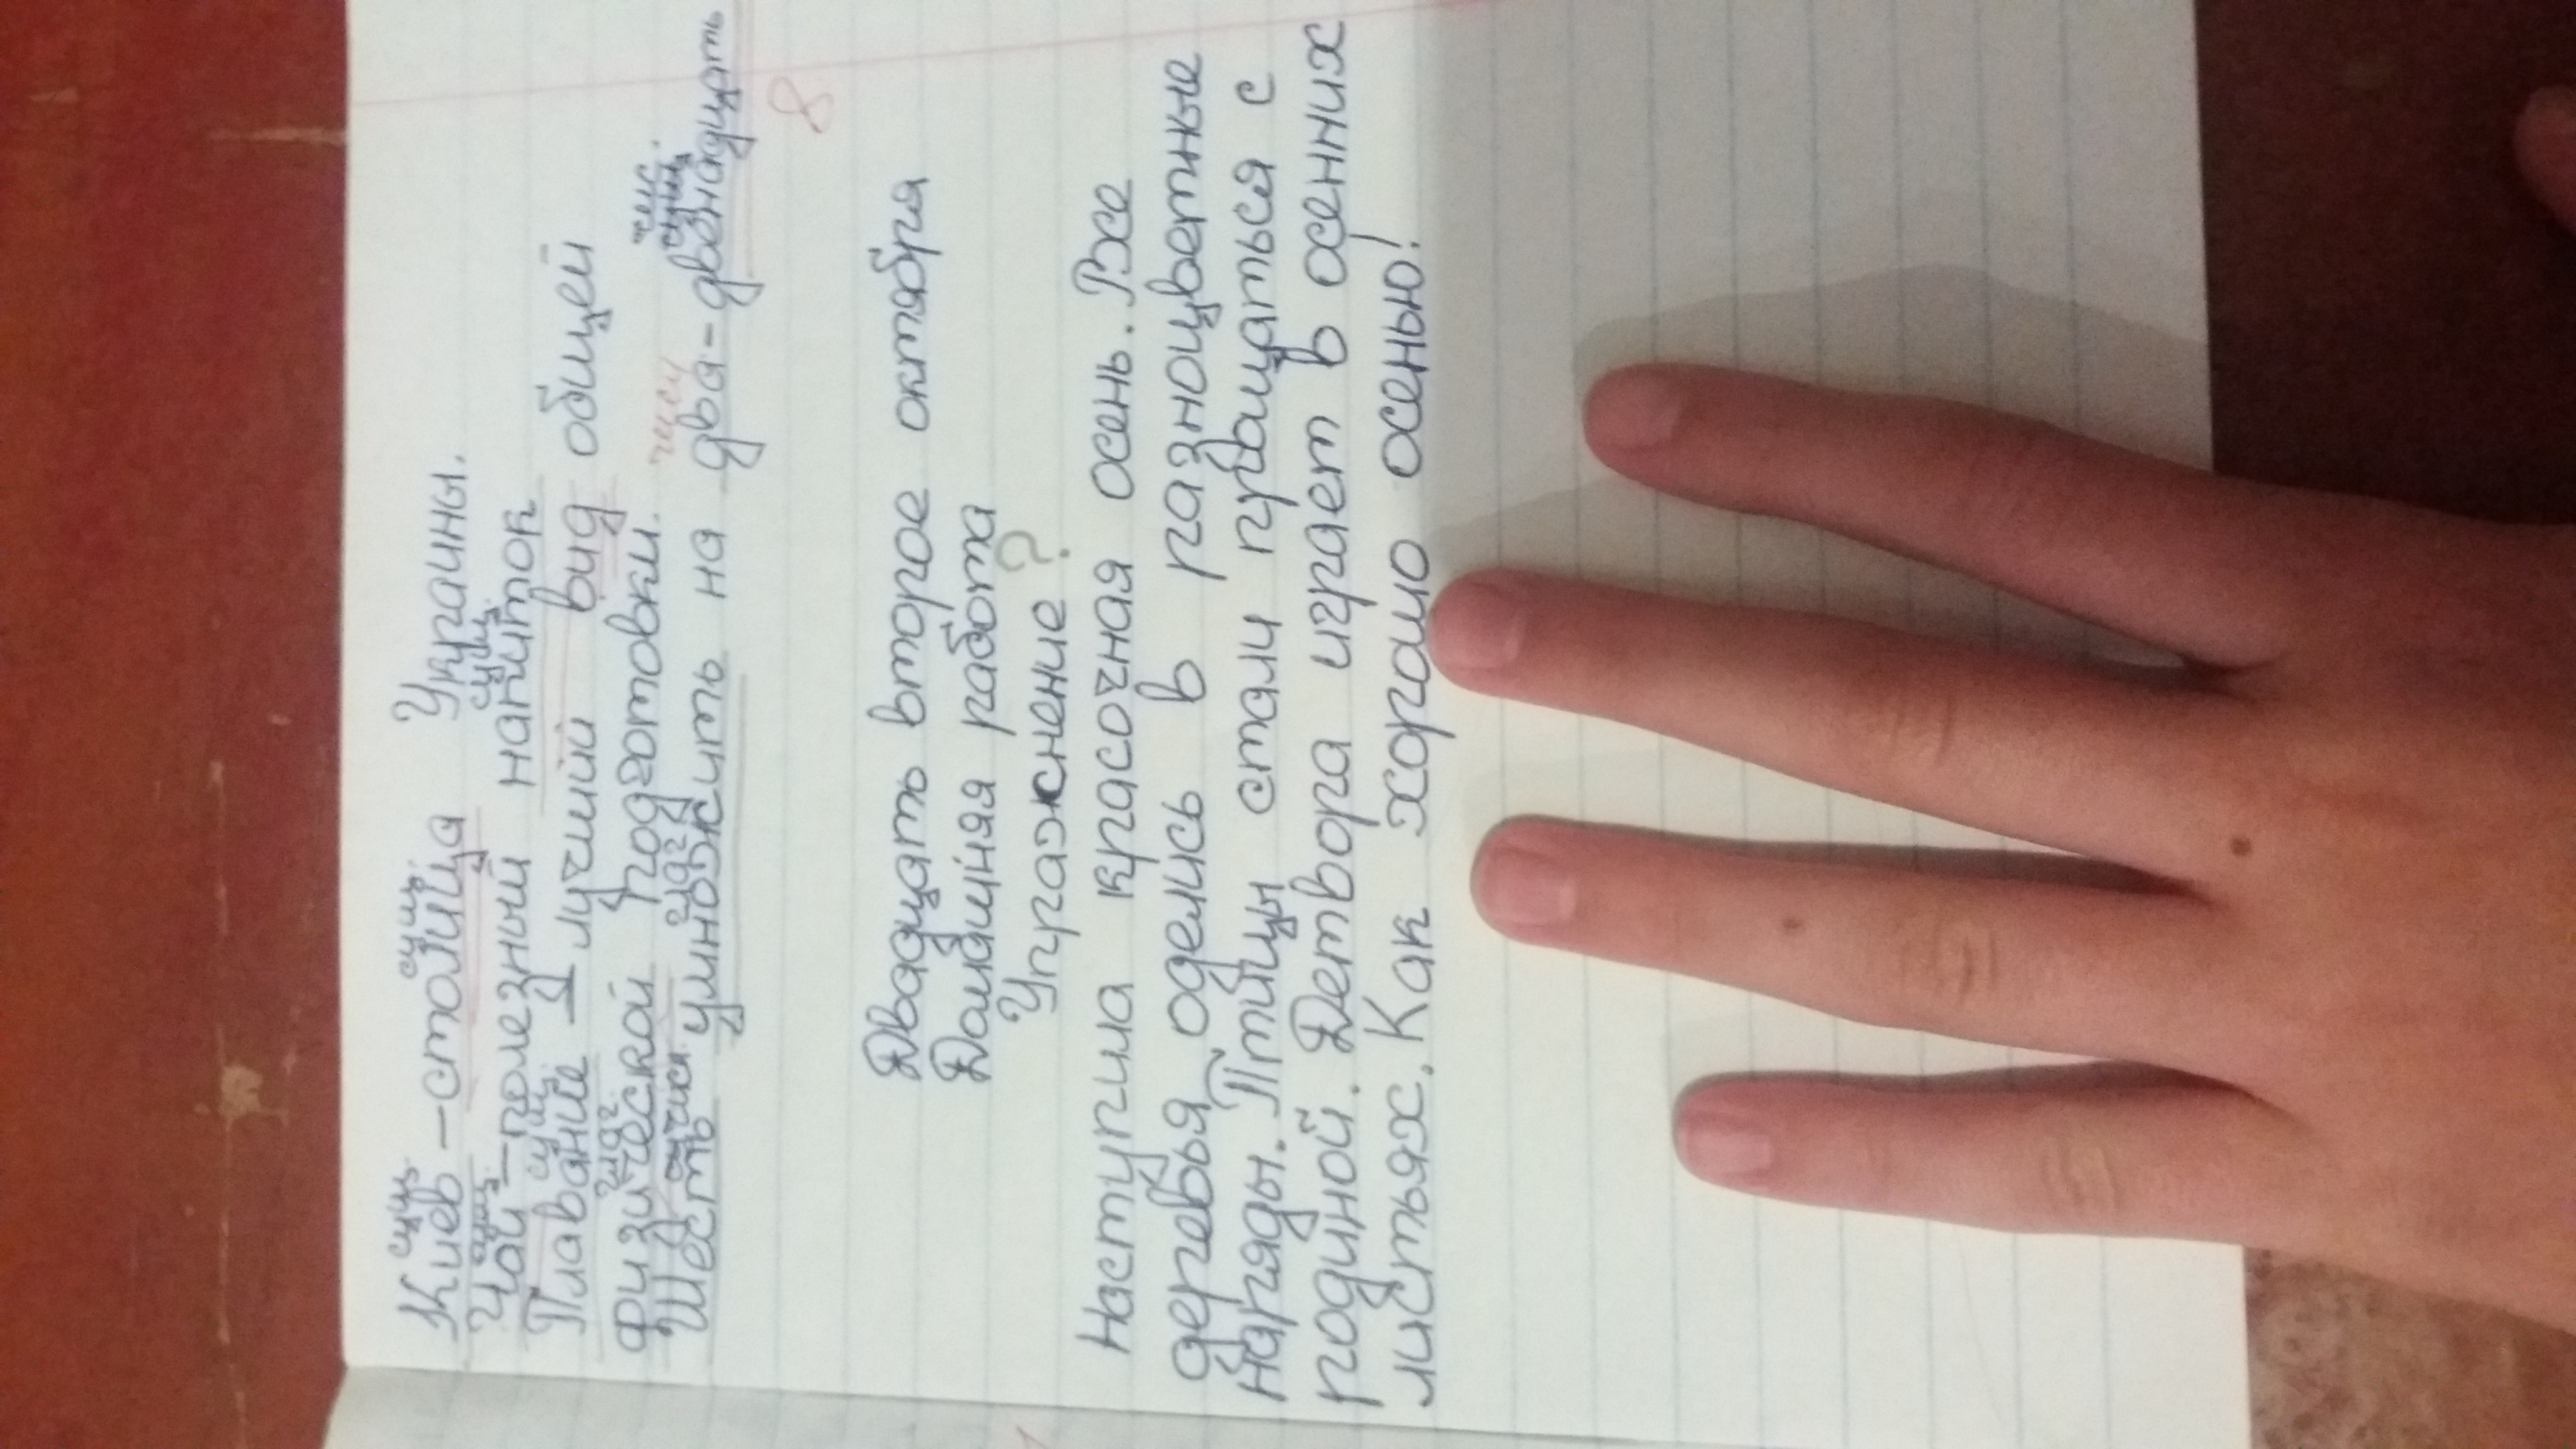 сущ. сущ.
Киев – столица Украины.
сущ. сущ.
Чай – полезный напиток
сущ.
Плавание – лучший вид общей
физической подготовки.
числ. числ.
Шесть умножить на два – двенадцать
8
Двадцать второе октября
Домашняя работа
Упражнение ?
Наступила красочная осень. Все
деревья оделись в разноцветные
наряды. Птицы стали прощаться с
родиной. Детвора играет в осенних
листьях. Как хорошо осенью!